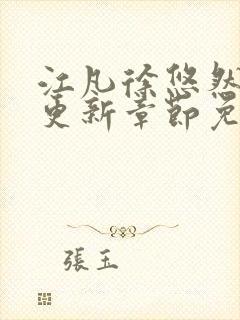 江凡徐悠然
更新章節免
張玉